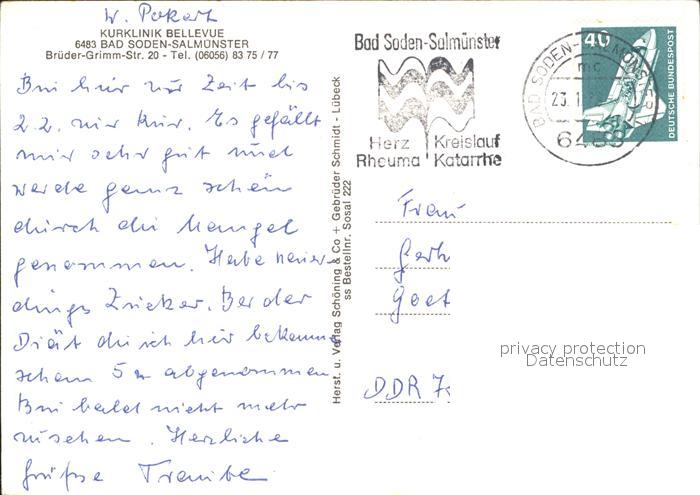 W. Pokart
KURKLINIK BELLEVUE
6483 BAD SODEN-SALMÜNSTER
Brüder-Grimm-Str. 20 - Tel. (06056) 83 75 / 77
Bin hier zur Zeit bis
2.2. zur Kur. Es gefällt
mir sehr gut und
werde ganz schön
durch die Mangel
genommen. Habe neuer-
dings Zucker. Bei der
Diät die ich hier bekomme
schon 5 abgenommen.
Bin bald nicht mehr
zu sehen. Herzliche
Grüße
Herst. u. Verlag Schöning & Co + Gebrüder Schmidt - Lübeck
ss Bestellnr. Sosal 222
Bad Soden-Salmünster
Herz Kreislauf
Rheuma Katarrhe
BAD SODEN-SALMÜNSTER
mc
23.1
6483
40
DEUTSCHE BUNDESPOST
Frau
Gerh
Goet
DDR 7
privacy protection
Datenschutz